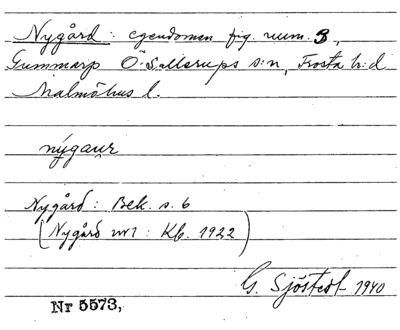 Nygård : egendomen fig. num. 3,
Gummarp Ö. Sallerups s:n, Frosta h:d
Malmöhus l.
nýgaur
Nygård : Bek. s. 6
(Nygård nr 1 : Kb. 1922)
G. Sjöstedt 1940
Nr 5573,